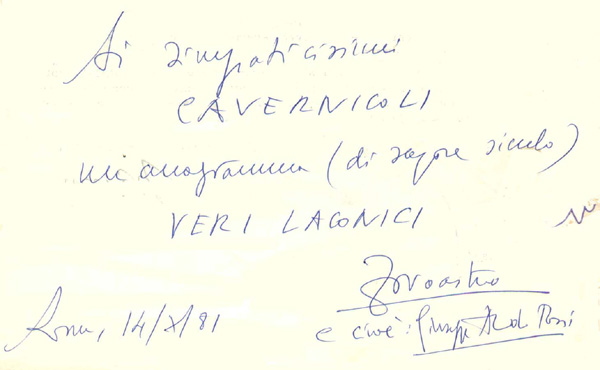 Ai simpaticissimi
CAVERNICOLI
un anagramma (di sapore siculo)
VERI LACONICI
Zoroastro
e cioè: Giuseppe Aldo Rossi
Roma, 14/X/81